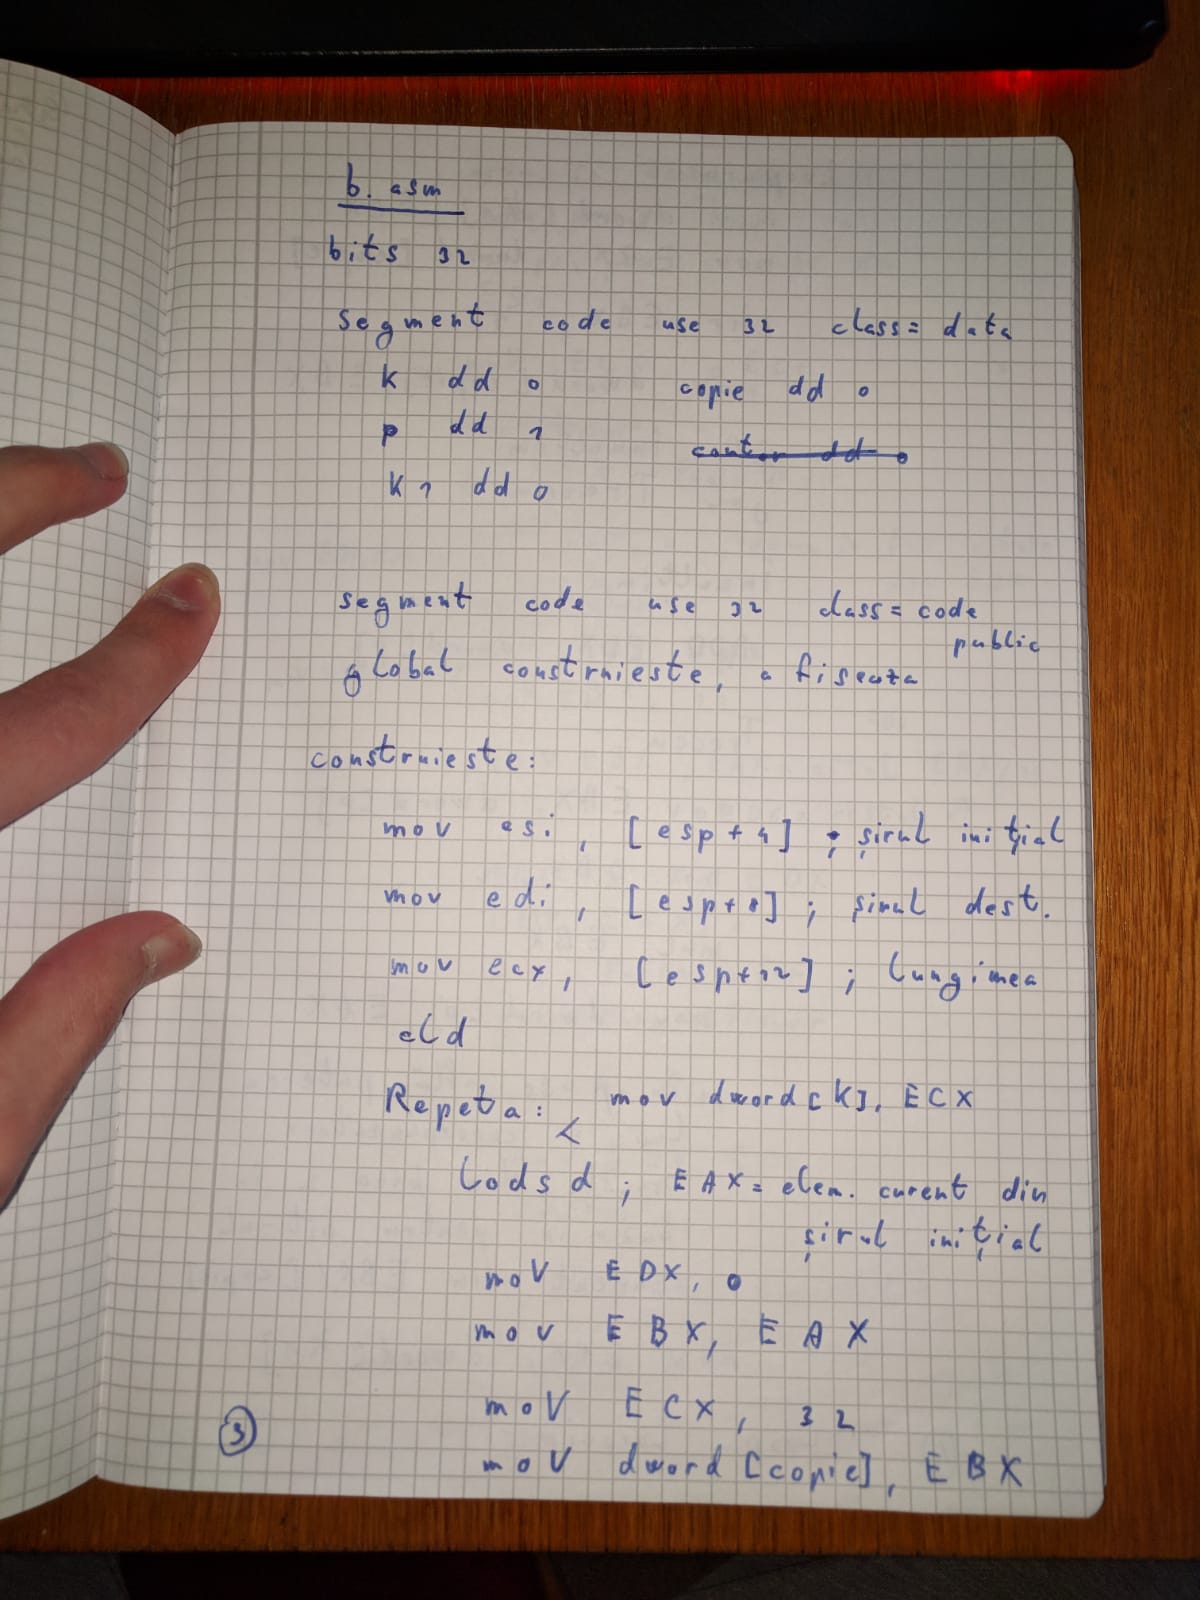 b. asm
bits 32
segment code use 32 class = data
K dd 0 copie dd 0
p dd 1 contor dd 0
K1 dd 0
segment code use 32 class = code
public
global construieste, afiseaza
construieste:
mov esi, [esp + 4] ; șirul inițial
mov edi, [esp+8] ; șirul dest.
mov ecx, [esp+12] ; lungimea
cld
Repeta: < mov dword[K], ECX
lodsd ; EAX = elem. curent din
șirul inițial
mov EDX, 0
mov EBX, EAX
mov ECX, 32
mov dword [copie], EBX
3